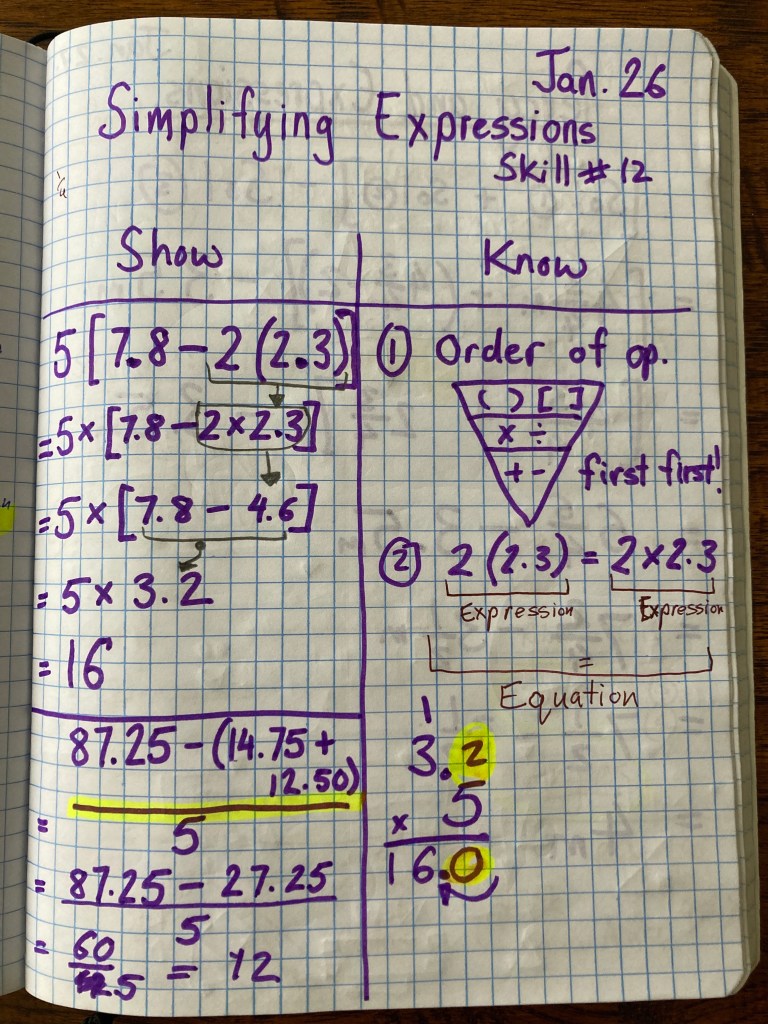 Jan. 26
Simplifying Expressions
Skill # 12
Show
5 [7.8 - 2 (2.3)]
= 5 × [7.8 - 2 × 2.3]
= 5 × [7.8 - 4.6]
= 5 × 3.2
= 16
87.25 - (14.75 +
12.50)
=
5
= 87.25 - 27.25
5
= 60 = 12
5
Know
① Order of op.
( ) [ ]
× ÷
+ - first first!
② 2 (2.3) = 2 × 2.3
Expression Expression
=
Equation
1
3.2
× 5
16.0